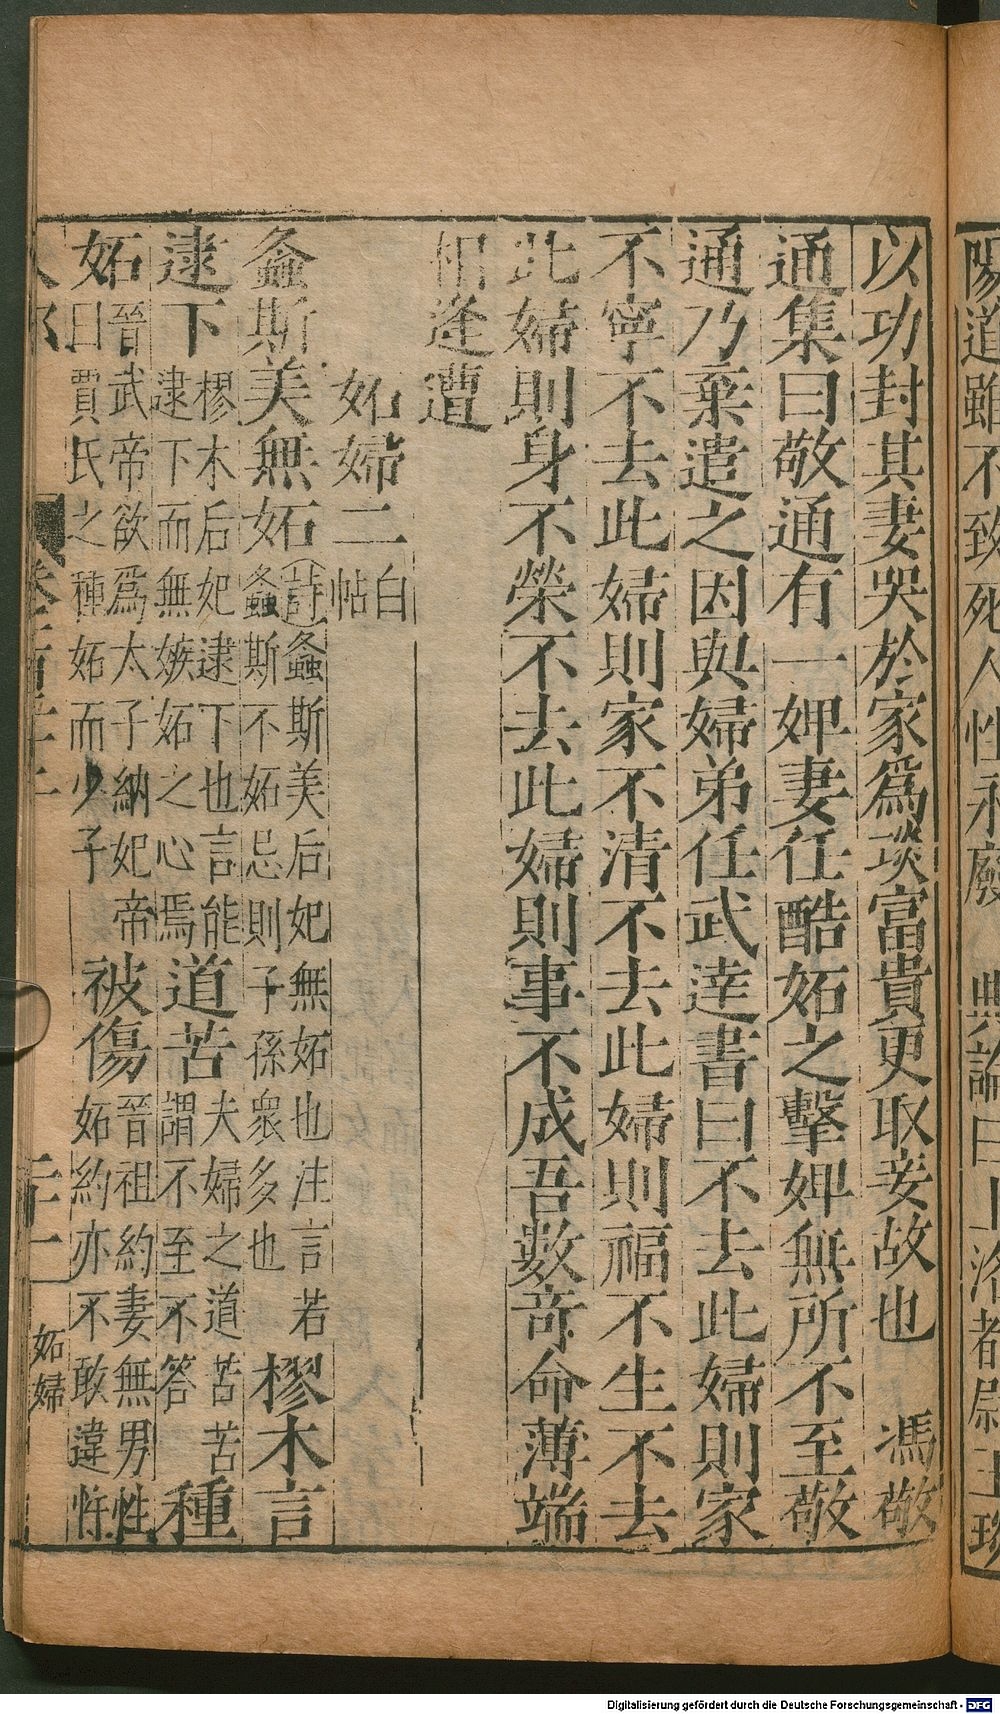 陽道雖不致死人性永廢 典論曰上洛都尉王琰
以功封其妻哭於家爲琰富貴更取妾故也 馮敬
通集曰敬通有一婢妻任酷妬之擊婢無所不至敬
通乃棄遣之因與婦弟任武達書曰不去此婦則家
不寧不去此婦則家不清不去此婦則福不生不去
此婦則身不榮不去此婦則事不成吾數奇命薄端
相逢遭
妬婦二 白帖
螽斯美無妬 詩螽斯美后妃無妬也注言若螽斯不妬忌則子孫衆多也 樛木言
逮下 樛木后妃逮下也言能逮下而無嫉妬之心焉 道苦 夫婦之道苦苦謂不至不答 種
妬 晉武帝欲爲太子納妃帝曰賈氏之種妬而少子 被傷 晉祖約妻無男性妬約亦不敢違忤
二十一 妬婦
Digitalisierung gefördert durch die Deutsche Forschungsgemeinschaft - DFG